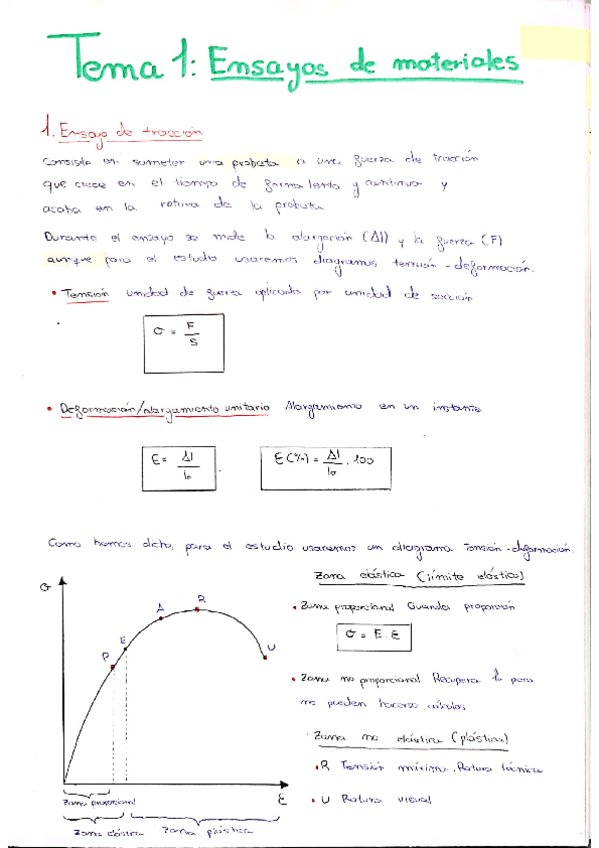 Tema 1: Ensayos de materiales
1. Ensayo de tracción
Consiste en someter una probeta a una fuerza de tracción
que crece en el tiempo de forma lenta y continua y
acaba en la rotura de la probeta
Durante el ensayo se mide la alargación (Δl) y la fuerza (F)
aunque para el estudio usaremos diagramas tensión-deformación.
• Tensión unidad de fuerza aplicada por unidad de sección
σ = F/S
• Deformación/alargamiento unitario Alargamiento en un instante
E = Δl/lo
E(%) = Δl/lo . 100
Como hemos dicho, para el estudio usaremos un diagrama tensión-deformación.
Zona elástica (límite elástico)
• Zona proporcional Guarda proporción
σ = E · ε
• Zona no proporcional Recupera lo pero
no pueden hacerse cálculos
Zona no elástica (plástica)
• R Tensión máxima. Rotura técnica
• U Rotura visual
σ
P
E
A
R
U
ε
Zona proporcional
Zona elástica
Zona plástica